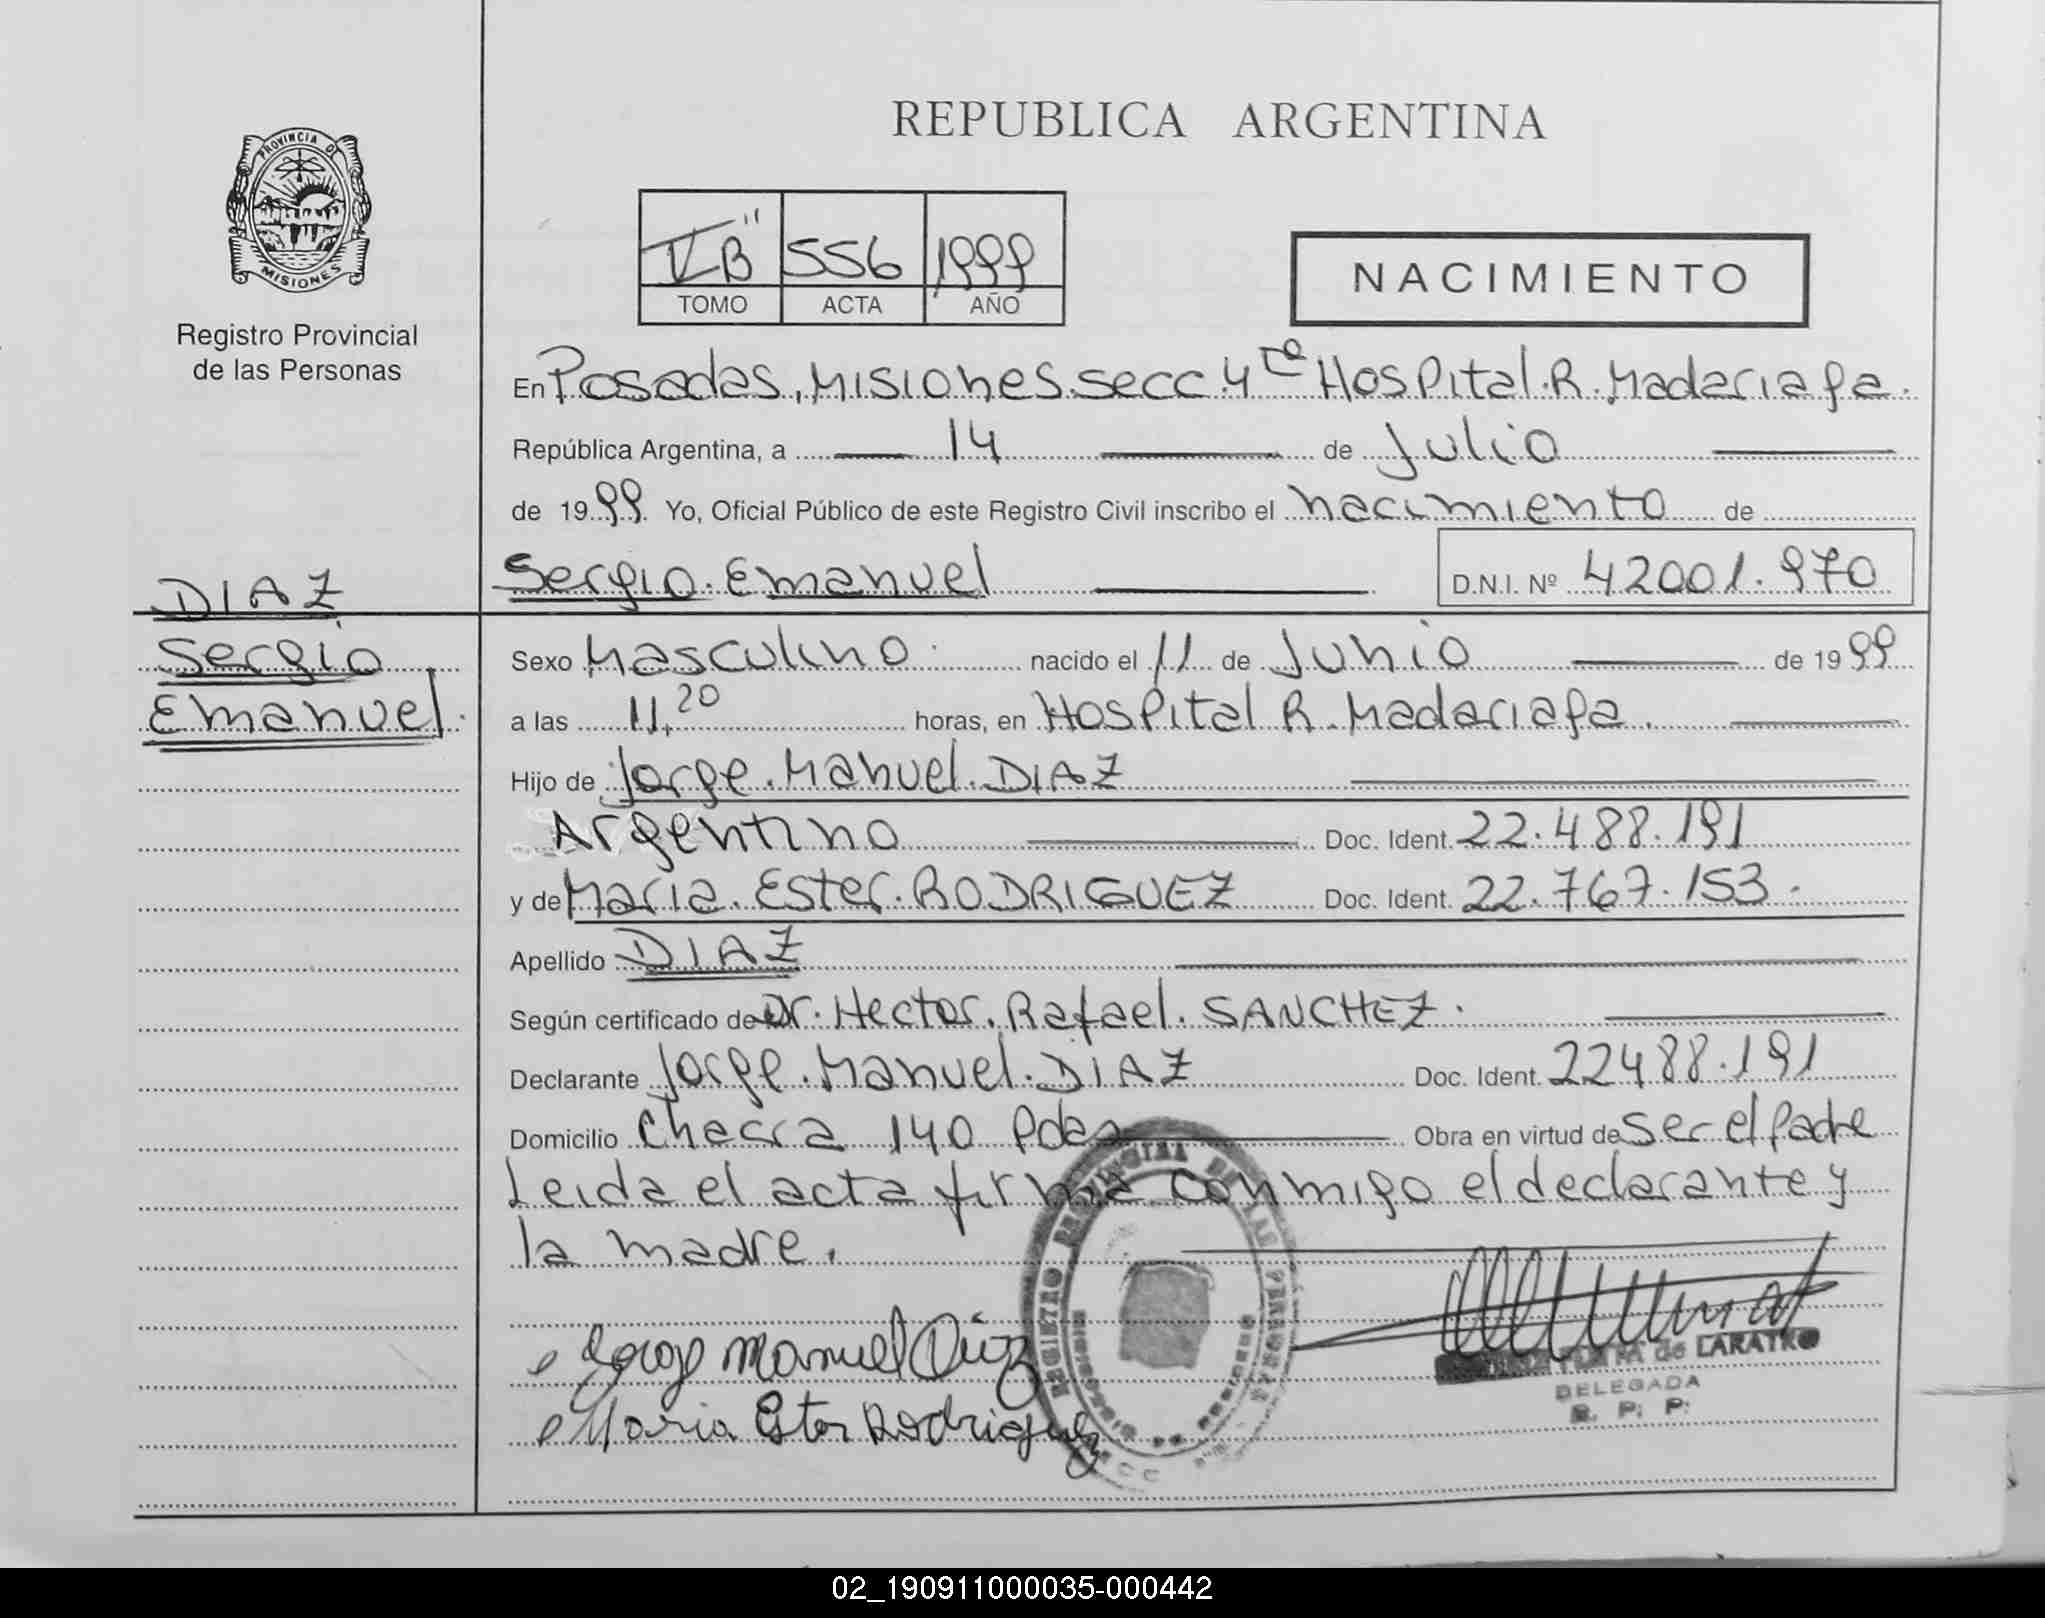 REPUBLICA ARGENTINA
PROVINCIA DE
MISIONES
Registro Provincial
de las Personas
"B" 556 1999
TOMO ACTA AÑO
NACIMIENTO
En Posadas, Misiones. secc. 4ta Hospital. R. Madariaga.
República Argentina, a 14 de Julio
de 1999 Yo, Oficial Público de este Registro Civil inscribo el nacimiento de
Sergio. Emanuel D.N.I. Nº 42001.970
DIAZ
Sergio
Emanuel.
Sexo Masculino. nacido el 11 de Junio de 1999
a las 11,20 horas, en Hospital R. Madariaga.
Hijo de Jorge. Manuel. DIAZ
Argentino Doc. Ident. 22.488.191
y de Maria. Ester. RODRIGUEZ Doc. Ident. 22.767.153.
Apellido DIAZ
Según certificado de Dr. Hector. Rafael. SANCHEZ.
Declarante Jorge. Manuel. DIAZ Doc. Ident. 22488.191
Domicilio Chacra 140 Pdas Obra en virtud de ser el Padre
Leida el acta firma conmigo el declarante y
la madre.
REGISTRO PROVINCIAL DE LAS PERSONAS
Jorge Manuel Díaz
Maria Ester Rodriguez
de LARATRO
DELEGADA
R. P. P.
02_190911000035-000442